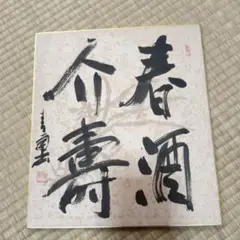 春酒
介壽